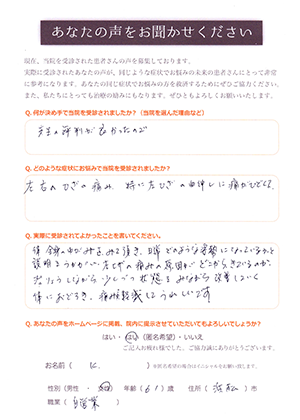 あなたの声をお聞かせください
現在、当院を受診された患者さんの声を募集しております。
実際に受診されたあなたの声が、同じような症状でお悩みの未来の患者さんにとって非常
に参考になります。あなたと同じ症状でお悩みの方を救済するためにぜひご協力ください。
また、私たちにとっても治療の励みにもなります。ぜひともよろしくお願いいたします。
Q. 何が決め手で当院を受診されましたか？（当院を選んだ理由など）
先生の評判が良かったので
Q. どのような症状にお悩みで当院を受診されましたか？
左右のひざの痛み 特に左ひざの曲伸しに痛みがひどく
Q. 実際に受診されてよかったことを書いてください。
体全体のゆがみをみて頂き、日頃どのような姿勢になっているかと
説明をうかがい左ひざの痛みの原因がどこからきているのか
少しづつ状態をみながら改善していく
体におどろき、痛み軽減にうれしいです
Q. あなたの声をホームページに掲載、院内に提示させていただいてもよろしいでしょうか？
はい・はい（匿名希望）・いいえ
ご記入お疲れ様でした。ご協力誠にありがとうございます。
お名前（ K. ）※匿名希望の場合はイニシャルをお願い致します。
性別（男性・ ）年齢（61）歳 住所（浜松）市
職業（自営業）